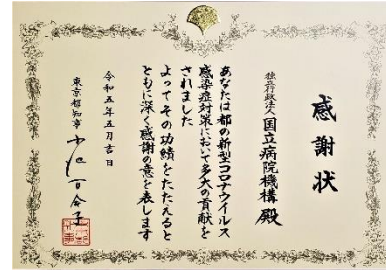 感謝状
独立行政法人国立病院機構殿
あなたは都の新型コロナウイルス
感染症対策において多大の貢献を
されました
よってその功績をたたえると
ともに深く感謝の意を表します
令和五年五月吉日
東京都知事 小池百合子